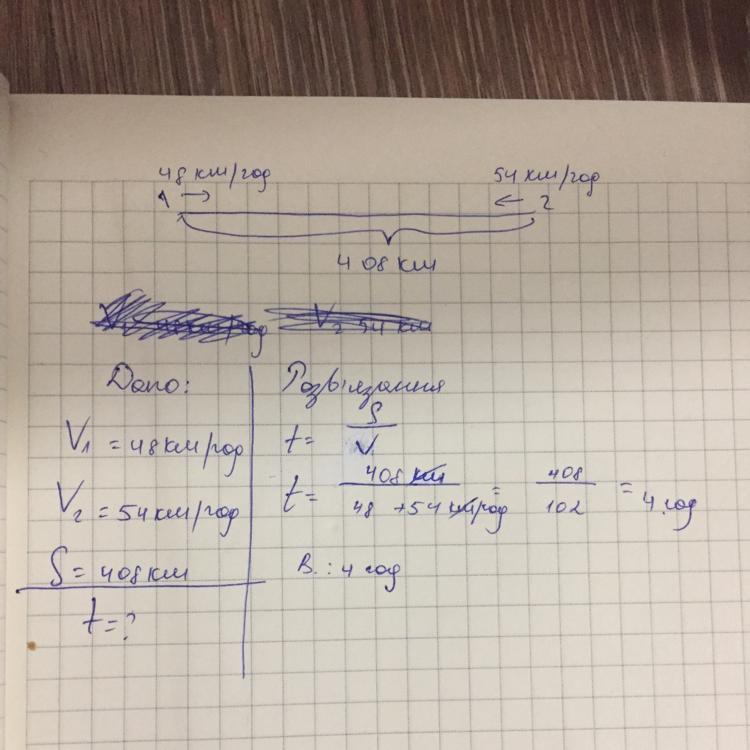 48 км/год 54 км/год
1 → ← 2
408 км
V₂ 54 км
Дано:
V₁ = 48 км/год
V₂ = 54 км/год
S = 408 км
t = ?
Розв'язання
t = S / V
t = 408 км / 48 + 54 км/год = 408 / 102 = 4 год
В. : 4 год